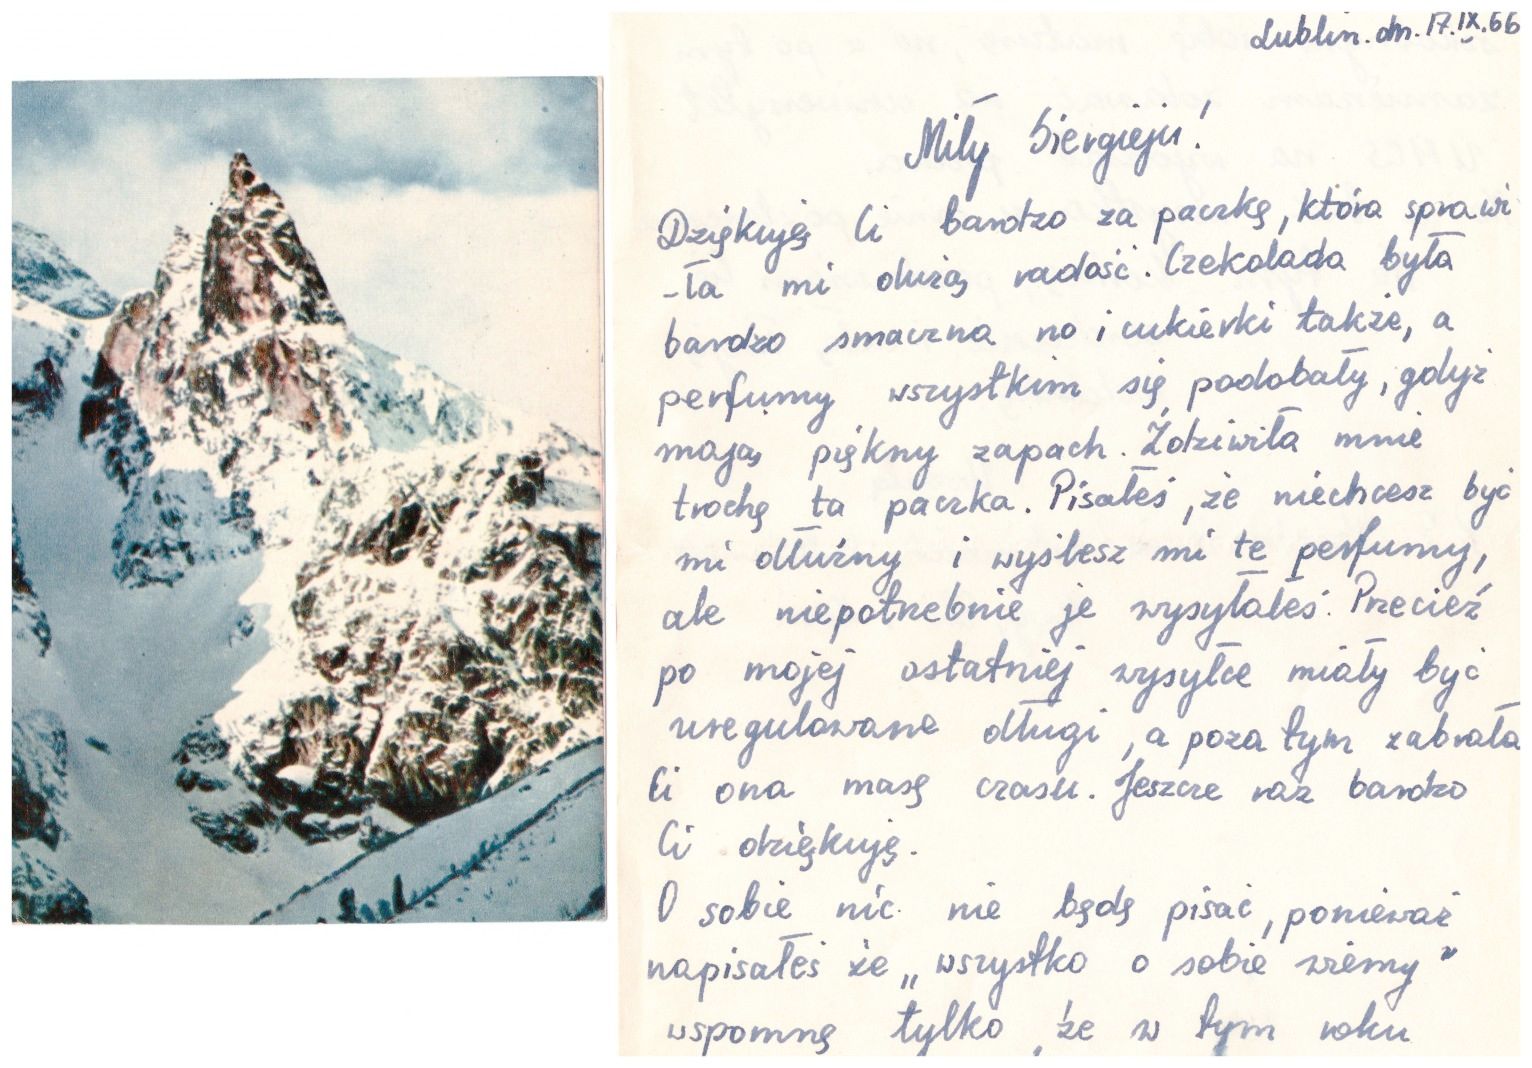 Lublin. dn. 17.IX.66
Miły Siergieju!
Dziękuję Ci bardzo za paczkę, która sprawi
-ła mi dużą radość. Czekolada była
bardzo smaczna no i cukierki także, a
perfumy wszystkim się podobały, gdyż
mają piękny zapach. Zdziwiła mnie
trochę ta paczka. Pisałeś, że niechcesz być
mi dłużny i wyślesz mi te perfumy,
ale niepotrzebnie je wysyłałeś. Przecież
po mojej ostatniej wysyłce miały być
uregulowane długi, a poza tym zabrała
Ci ona masę czasu. Jeszcze raz bardzo
Ci dziękuję.
O sobie nic nie będę pisać, ponieważ
napisałeś że „wszystko o sobie wiemy"
wspomnę tylko, że w tym roku